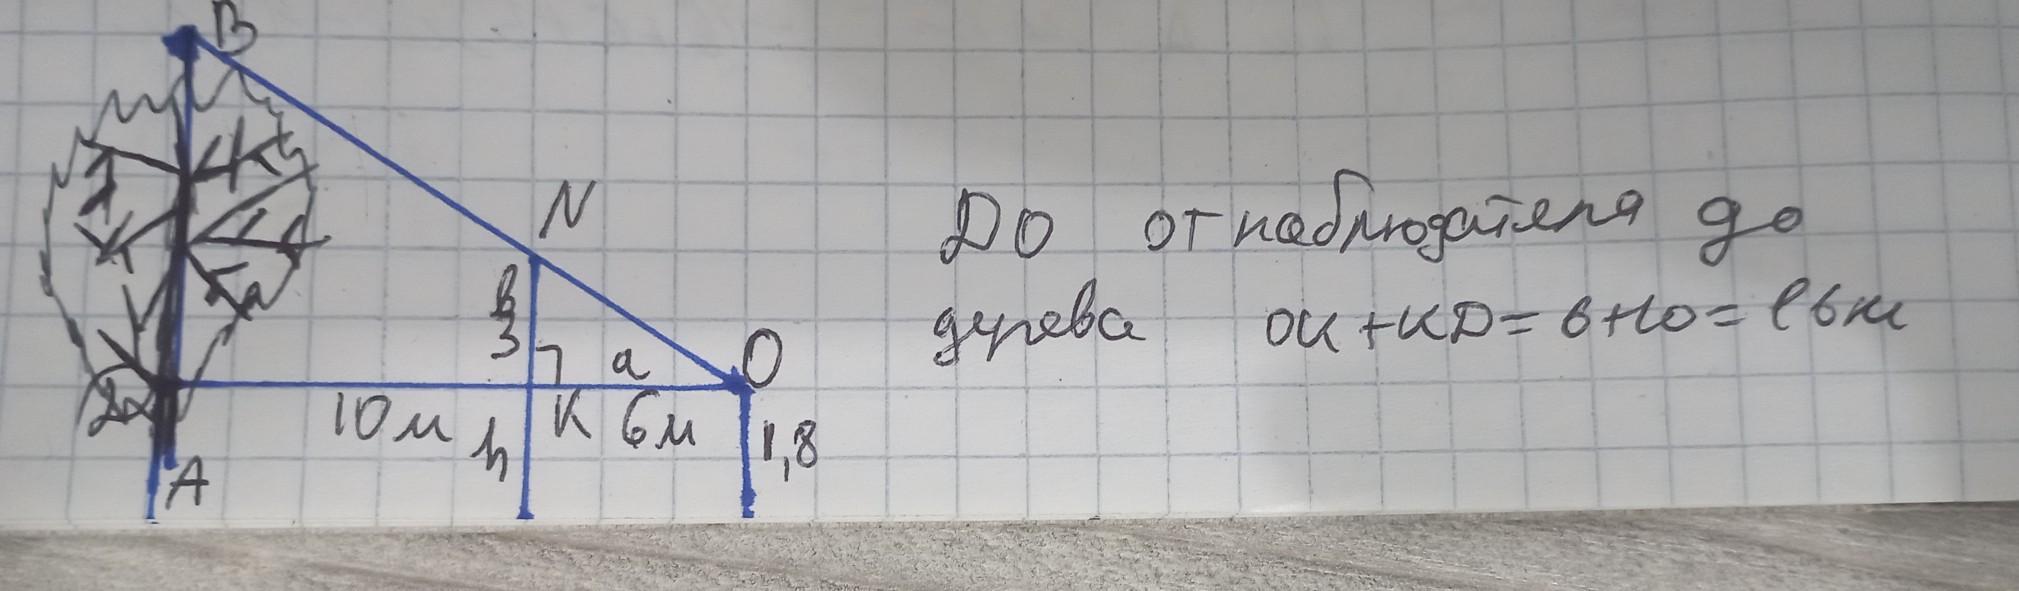 B
N
в
3
а
O
D
10м
K
6м
h
1,8
A
DO от наблюдателя до
дерева OK+KD=6+10=16м